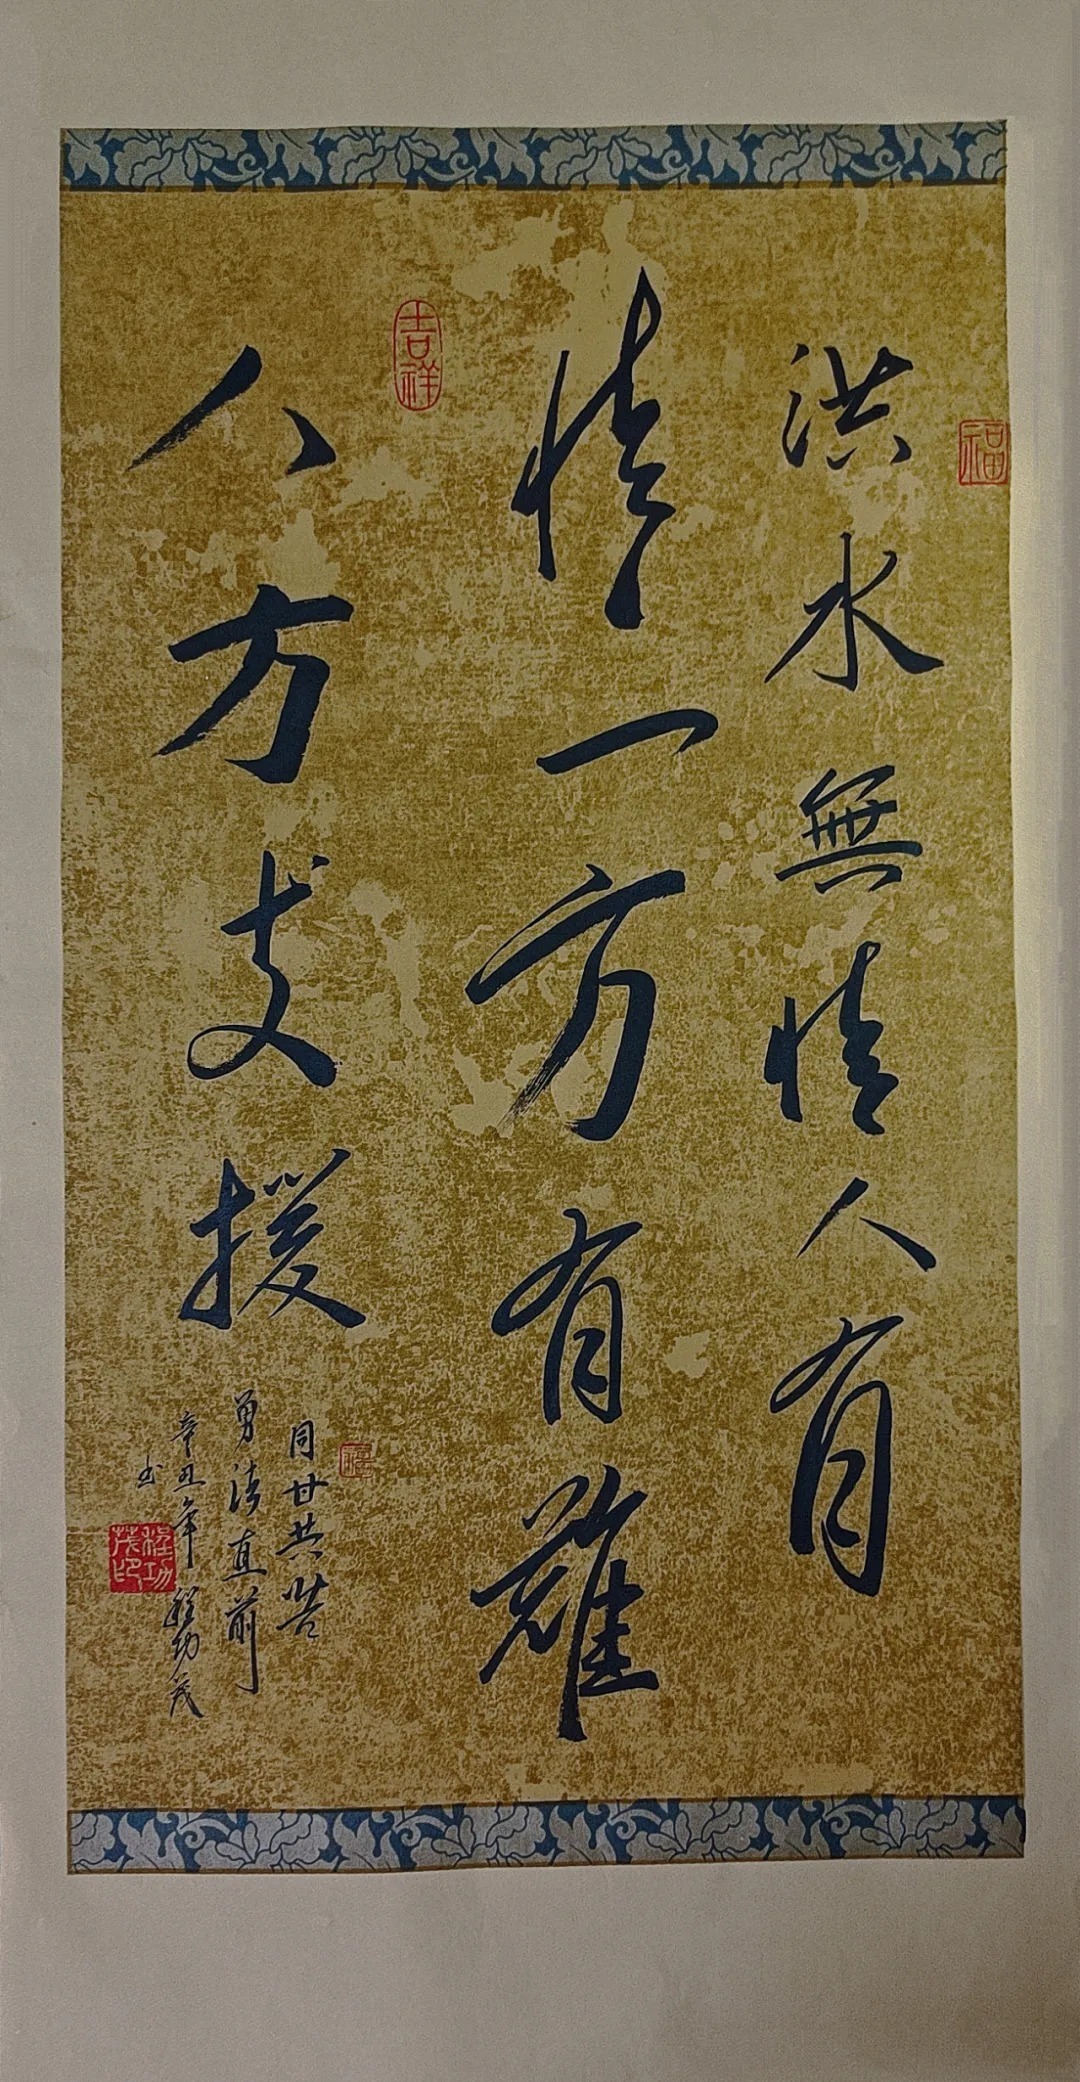 洪水無情人有
情一方有難
八方支援
同甘共苦
勇往直前
辛丑年 程功茂
书
福
吉祥
福
程功茂印